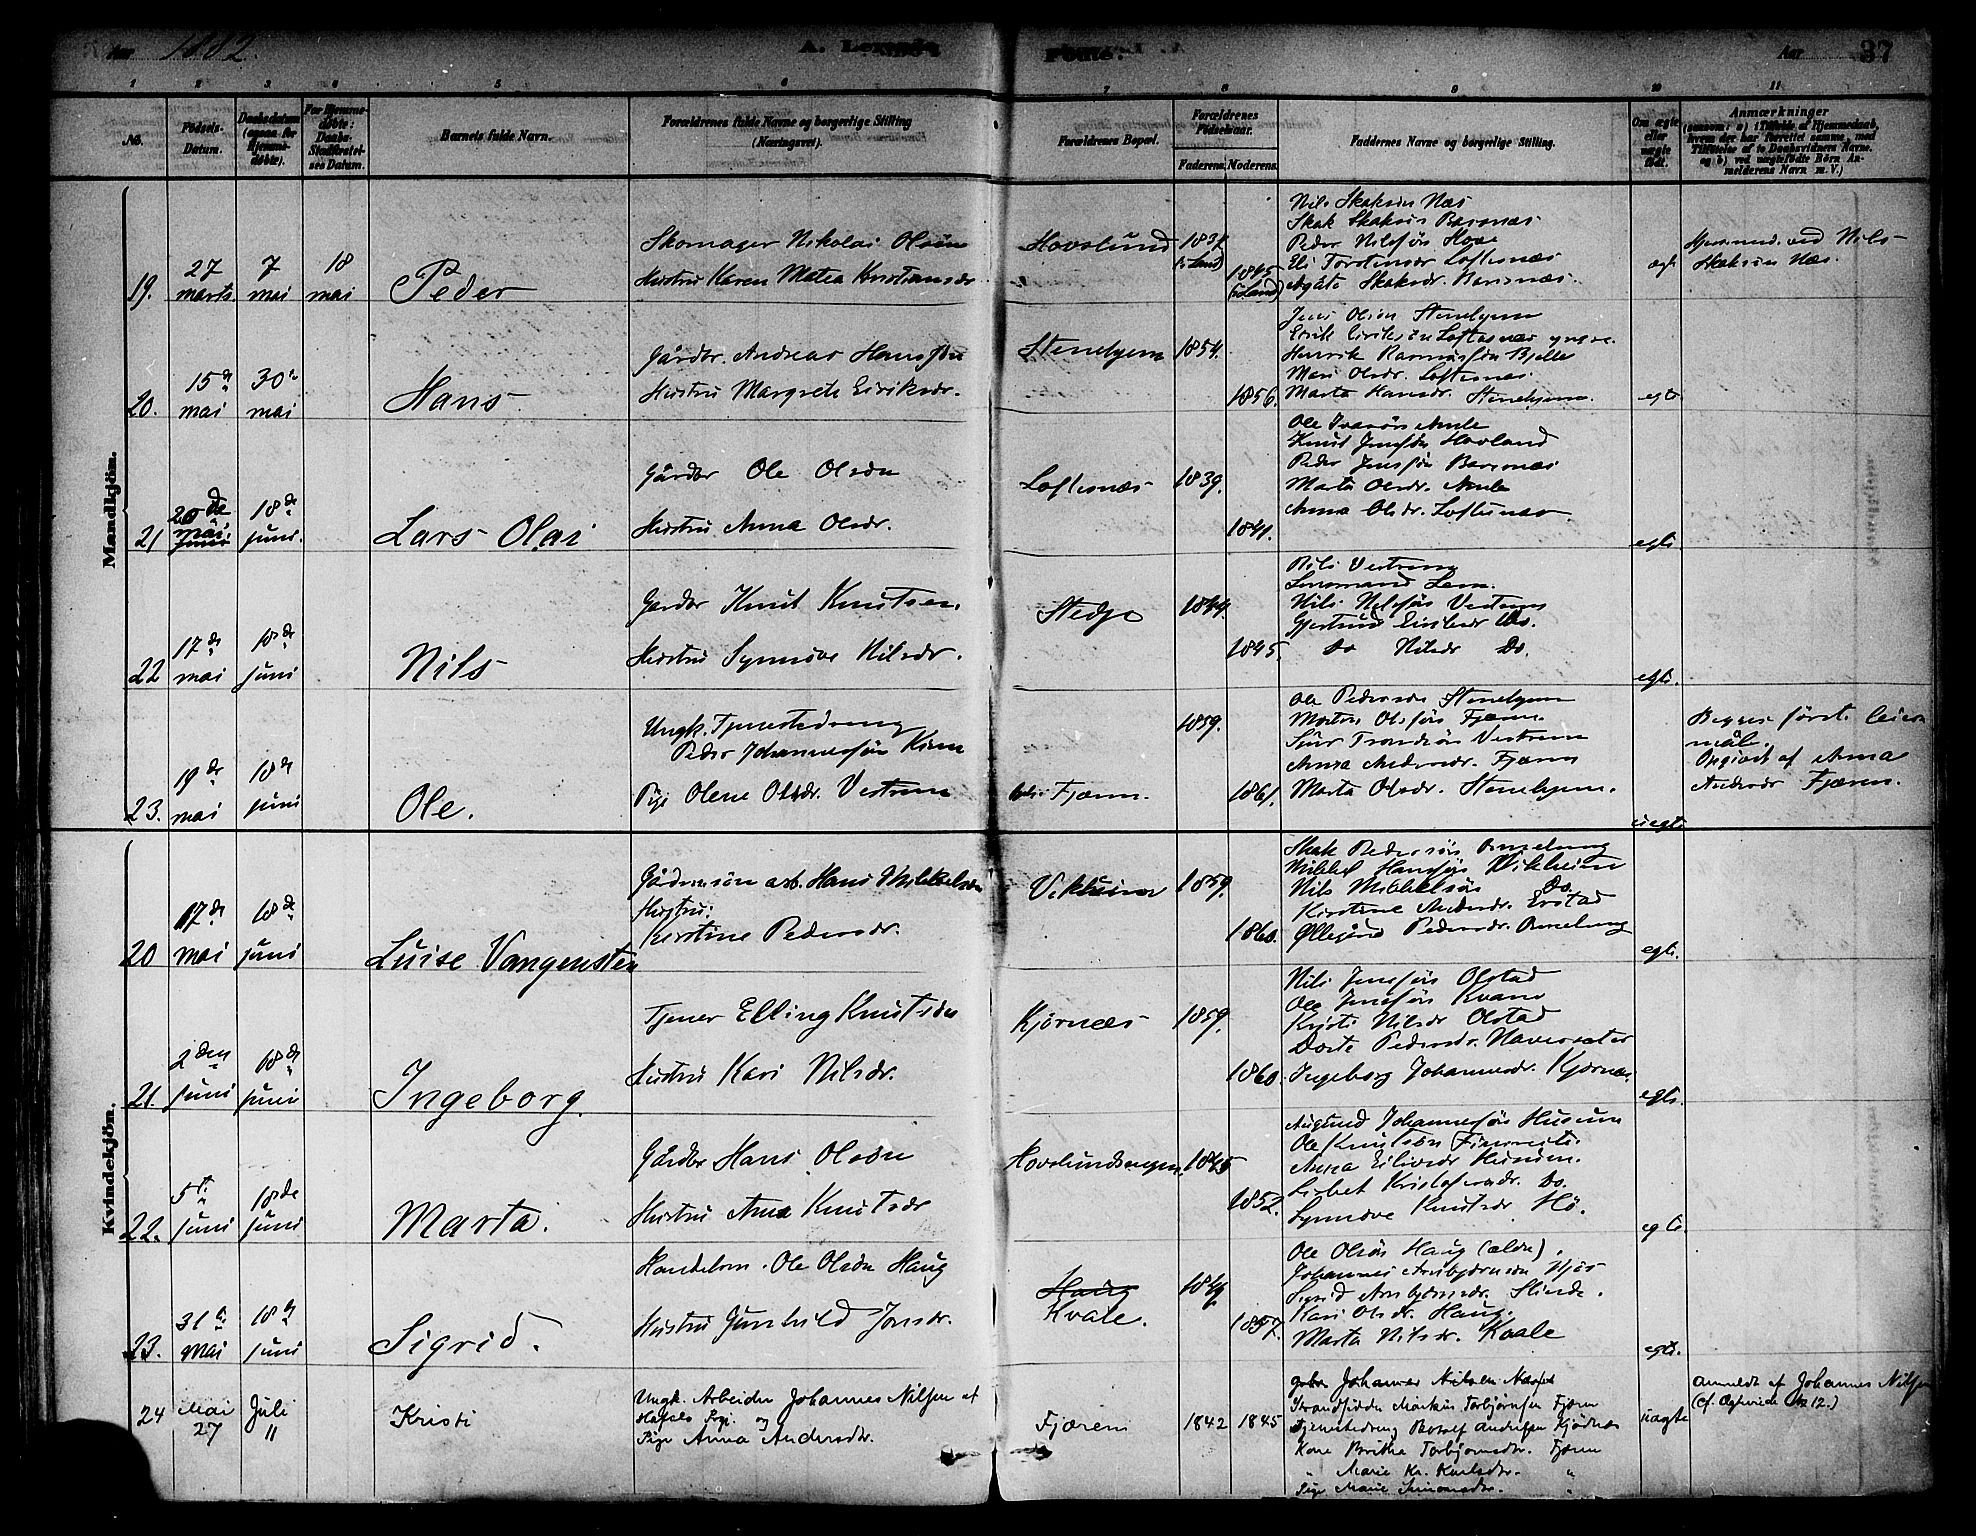 Aar 1882.
A. Levende
Fødte.
Aar
37
1 2 3 4 5 6 7 8 9 10 11
No.
Fødsels-Datum.
Daabsdatum (ogsaa for Hjemmedøbte).
For Hjemmedøbte: Daabs-Stadfæstelses Datum.
Barnets fulde Navn.
Forældrenes fulde Navne og borgerlige Stilling (Næringsvei).
Forældrenes Bopæl.
Forældrenes Fødselsaar.
Faderens. Moderens.
Faddernes Navne og borgerlige Stilling.
Om ægte eller uægte født.
Anmærkninger
Mandkjön.
19. 27 marts 7 mai 18 mai Peder
Skomager Nikolai Olsön
Hustru Karen Matea Kristiansdr
Hovslund 1837 (i Land) 1845 (i Land)
Nils Skaksön Næs
Skak Skaksön Barsnæs
Peder Nilsson Hove
Eli Torstensdr Loftesnæs
Agate Skaksdr. Barsnæs.
ægt
Hjemmed. ved Nils
Skaksön Næs.
20. 15de mai 30te mai Hans
Gårdbr. Andreas Hansson
Hustru Margrete Eiriksdr.
Stenehjem 1854. 1856.
Jens Olsön Stenehjem
Eirik Eiriksön Loftesnæs yngre.
Henrik Rasmusson Bjelle
Mari Olsdr. Loftesnæs.
Marta Hansdr. Stenehjem.
egte
21 20de mai juni 18de juni. Lars Olai
Gårdbr Ole Olsön
Hustru Anna Olsdr.
Loftesnæs 1839. 1841.
Ole Ivarsön Amle
Knut Jensson Hovland
Peder Jensson Barsnæs
Marta Olsdr. Amle
Anna Olsdr. Loftesnæs.
egte.
22 17de mai 18de juni Nils
Gardbr Knut Knutsen.
Hustru Synnöve Nilsdr.
Stedje 1844. 1845.
Nils Vestrum
Lensmand Lem.
Nils Nilsson Vestrum
Gjertrud Eiriksdr Do.
Do Nilsdr Do.
egte.
23. 19de mai 18de juni Ole.
Ungk. Tjenestedreng
Peder Johannesson
Pige Olene Olsdr. Vestrum
Fjærn. 1859. 1861.
Ole Pedersön Stenehjem
Martin Olsson Fjærn.
Sjur Trondsön Vestrum
Anna Andersdr. Fjærn
Marta Olsdr. Stenehjem.
uegte
Begges förste leiermål.
Opgivet af Anna
Andersdr Fjæren.
Kvindekjön.
20 17de mai 18de juni Luise Vangensten
Gårdmandsön arb. Hans Mikkelsön
Hustru:
Kirstine Pedersdr.
Vikheim 1859. 1860.
Skak Pedersön Omelung
Mikkel Hansson Vikheim
Nils Mikkelsön Do.
Kirstine Andersdr. Erstad
Øllegård Pedersdr. Omelung
egte.
21. 2den juni 18de juni Ingeborg.
Tjener Elling Knutsön
Hustru Kari Nilsdr.
Kjörnæs 1859. 1860.
Nils Jensson Olstad
Ole Jensson Kvam
Kristi Nilsdr Olstad
Dorte Pedersdr. Navarsæter
Ingeborg Johannesdr. Kjörnæs.
egte.
22. 5te juni 18de juni Marta.
Gårdbr Hans Olsön
Hustru Anna Knutsdr
Hovslundsengen. 1845 1852.
Augsund Johannesson Husum
Ole Knutsön
Anna Eilivsdr Husum.
Lisbet Kristofersdr. Do.
Synnöve Knutsdr. Hö.
egte.
23. 31te mai 18de juni Sigrid.
Handelsm. Ole Olsön Haug
Hustru Gunhild Jonsdr.
Haug
Kvale. 1849. 1857.
Ole Olsön Haug (ældre).
Johannes Arnbjörnsön Njös
Sigrid Arnbjörnsdr. Slinde.
Kari Olsdr. Haug.
Marta Nilsdr. Kvale
egte.
24 Mai 27 Juli 11 Kristi
Ungk. Arbeider Johannes Nilsen af
og
Pige Anna Andersdtr.
Fjæren 1842 1845
Johannes Nilsen
Strandsidder Markus Torbjörnsen Fjæren
Tjenestedreng Andersen Kjörnæs
Kone Britha Torbjørnsdtr. Fjæren
" Marie Kr. Karlsdtr. "
Pige Marie Simonsdtr. "
uægte
Anmeldt af Johannes Nilsen